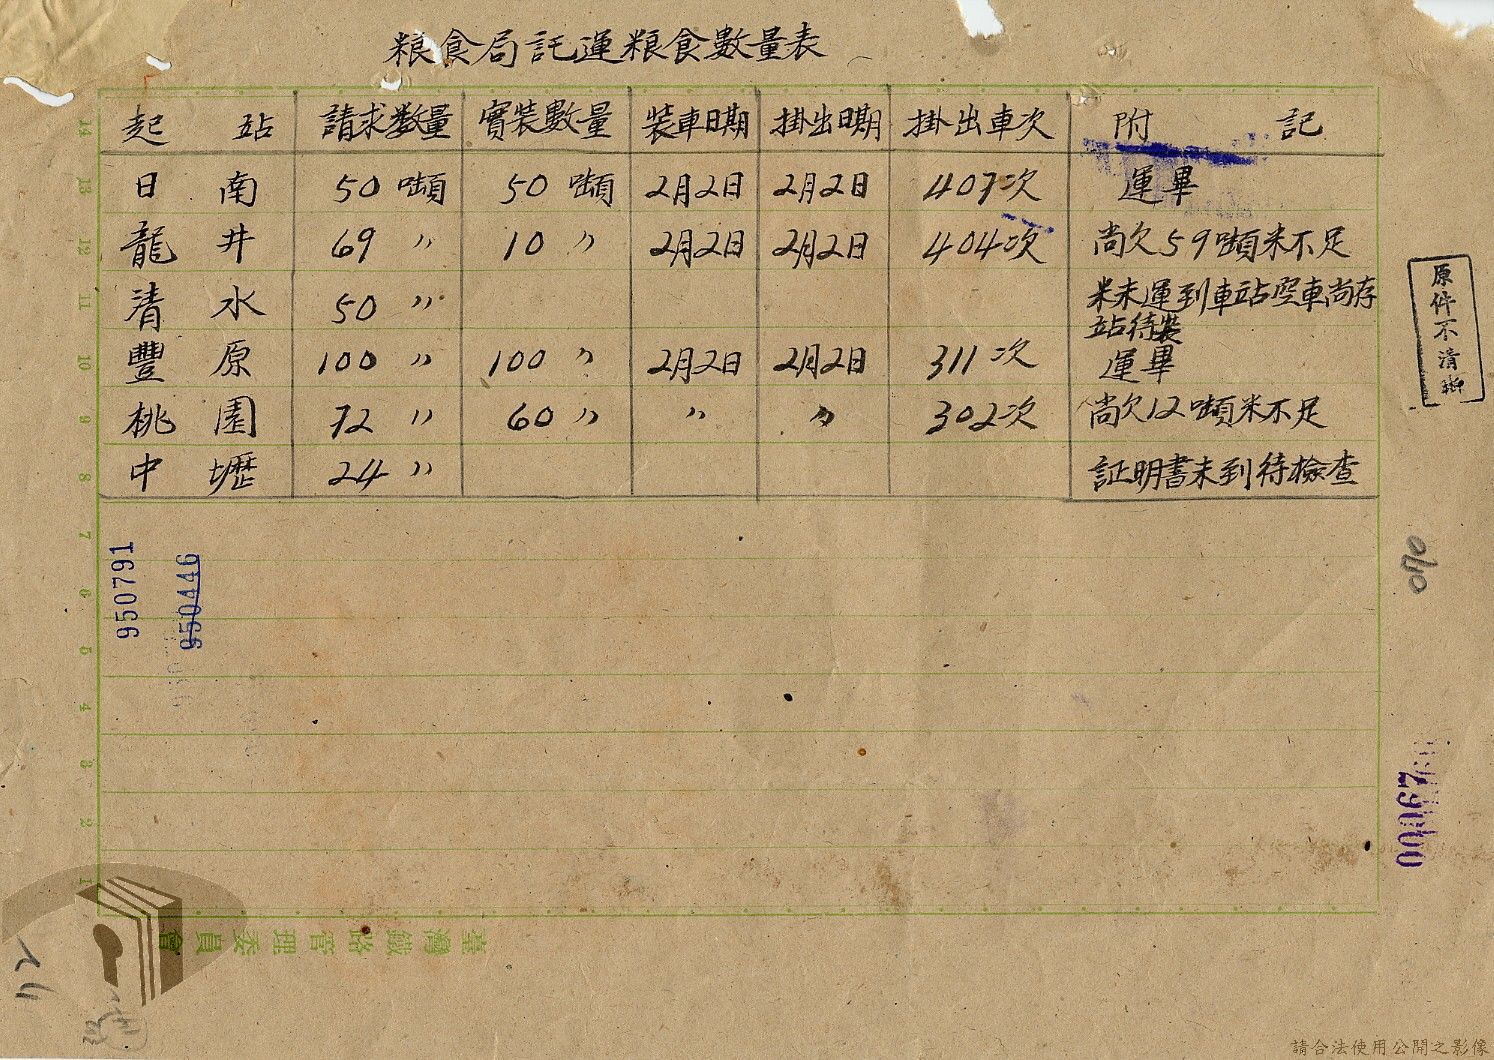 粮食局託運粮食數量表
起 站 請求數量 實裝數量 装車日期 掛出日期 掛出車次 附 記
日 南 50 噸 50 噸 2月2日 2月2日 407次 運畢
龍 井 69 〃 10 〃 2月2日 2月2日 404次 尚欠59噸米不足
清 水 50 〃 米未運到車站空車尚存
站待裝
豐 原 100 〃 100 〃 2月2日 2月2日 311次 運畢
桃 園 72 〃 60 〃 〃 〃 302次 尚欠12噸米不足
中 壢 24 〃 証明書未到待檢查
原件不清晰
14
13
12
11
10
9
8
7
6
5
4
3
2
1
950791
950446
070
00067
臺灣鐵路管理委員會
72
請合法使用公開之影像